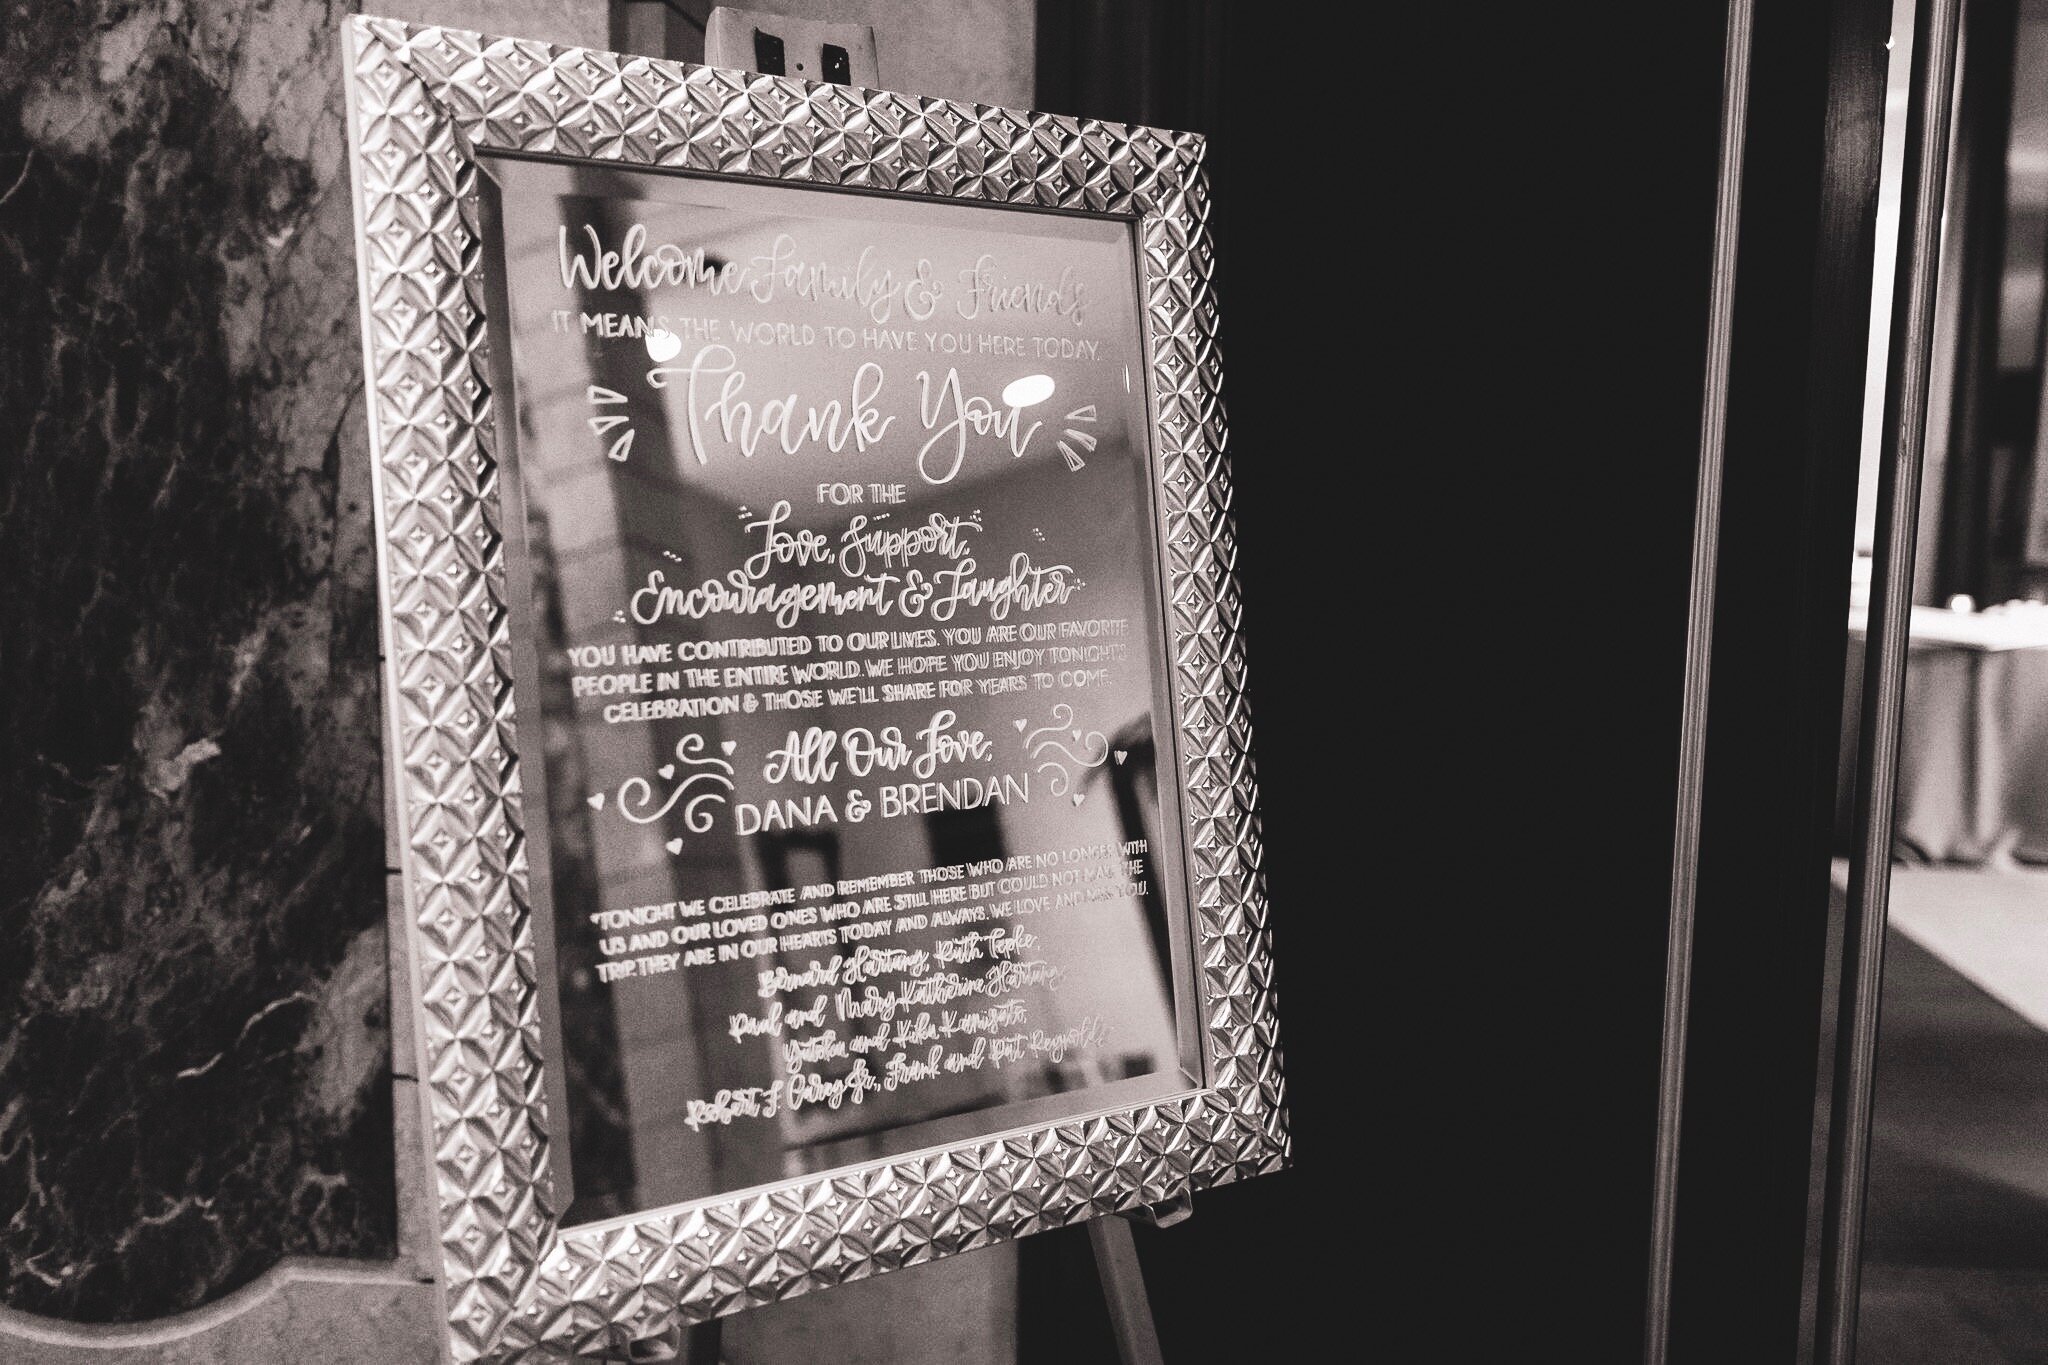 Welcome Family & Friends
IT MEANS THE WORLD TO HAVE YOU HERE TODAY.
Thank You
FOR THE
Love, Support,
Encouragement & Laughter
YOU HAVE CONTRIBUTED TO OUR LIVES. YOU ARE OUR FAVORITE
PEOPLE IN THE ENTIRE WORLD. WE HOPE YOU ENJOY TONIGHT'S
CELEBRATION & THOSE WE'LL SHARE FOR YEARS TO COME.
All Our Love,
DANA & BRENDAN
*TONIGHT WE CELEBRATE AND REMEMBER THOSE WHO ARE NO LONGER WITH
US AND OUR LOVED ONES WHO ARE STILL HERE BUT COULD NOT MAKE THE
TRIP. THEY ARE IN OUR HEARTS TODAY AND ALWAYS. WE LOVE AND MISS YOU.
Bernard Hartung, Ruth Tepke,
Paul and Mary Katherine Hartung
Yutaka and Kika Kamisato,
Robert F. Carey Jr., Frank and Pat Reynolds